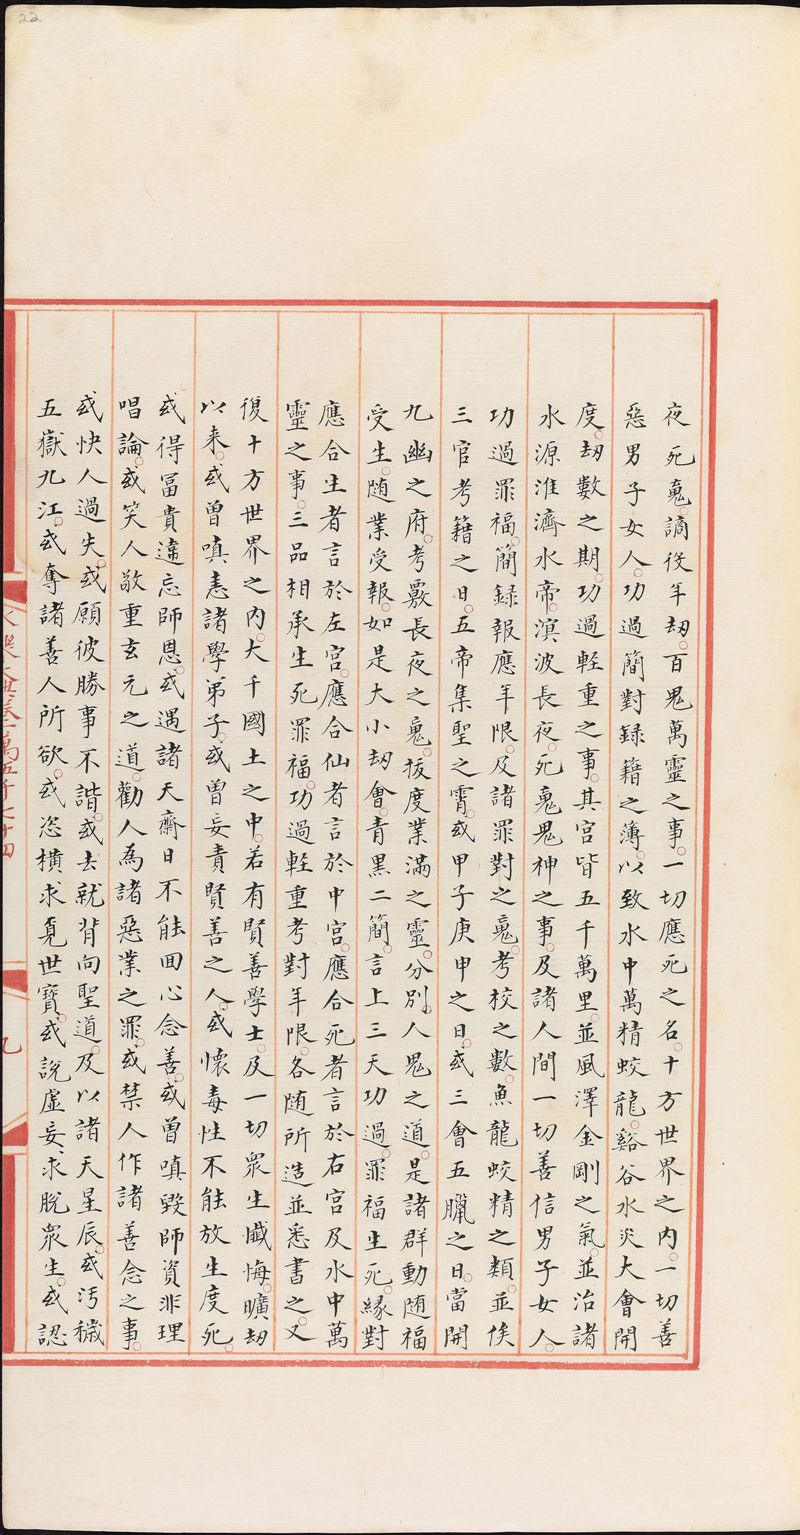 夜死䰟。謫役年刼。百鬼萬靈之事。一切應死之名。十方世界之内。一切善
惡男子女人。功過簡對録籍之薄。以致水中萬精蛟龍。谿谷水災大會開
度。刼數之期。功過輕重之事。其宮皆五千萬里。並風澤金剛之氣。並治諸
水源淮濟水帝。溟波長夜。死䰟鬼神之事。及諸人間一切善信男子女人。
功過罪福。簡録報應年限。及諸罪對之䰟。考校之數。魚龍蛟精之類。並俟
三官考籍之日。五帝集聖之霄。或甲子庚申之日。或三會五臘之日。當開
九幽之府。考覈長夜之䰟。拔度業滿之靈。分別。人鬼之道。是諸群動随福
受生。随業受報。如是大小刼會。青黑二簡。言上三天功過。罪福生死。緣對
應合生者言於左宮。應合仙者言於中宮。應合死者言於右宮及水中萬
靈之事。三品相承生死罪福。功過輕重考對年限。各随所造並悉書之。又
復十方世界之内。大千國土之中。若有賢善學士。及一切眾生懺悔。曠刼
以来。或曽嗔恚諸學弟子。或曽妄責賢善之人。或懷毒性不能放生度死。
或得冨貴違忘師恩。或遇諸天齋日不能回心念善。或曽嗔毀師資非理
唱論。或笑人敬重玄元之道。勸人為諸惡業之罪。或禁人作諸善念之事。
或快人過失。或願彼勝事不諧。或去就背向聖道。及以諸天星辰。或汚穢
五嶽九江。或奪諸善人所欲。或恣横求覔世寳。或説虛妄、求脱眾生。或認
九
22